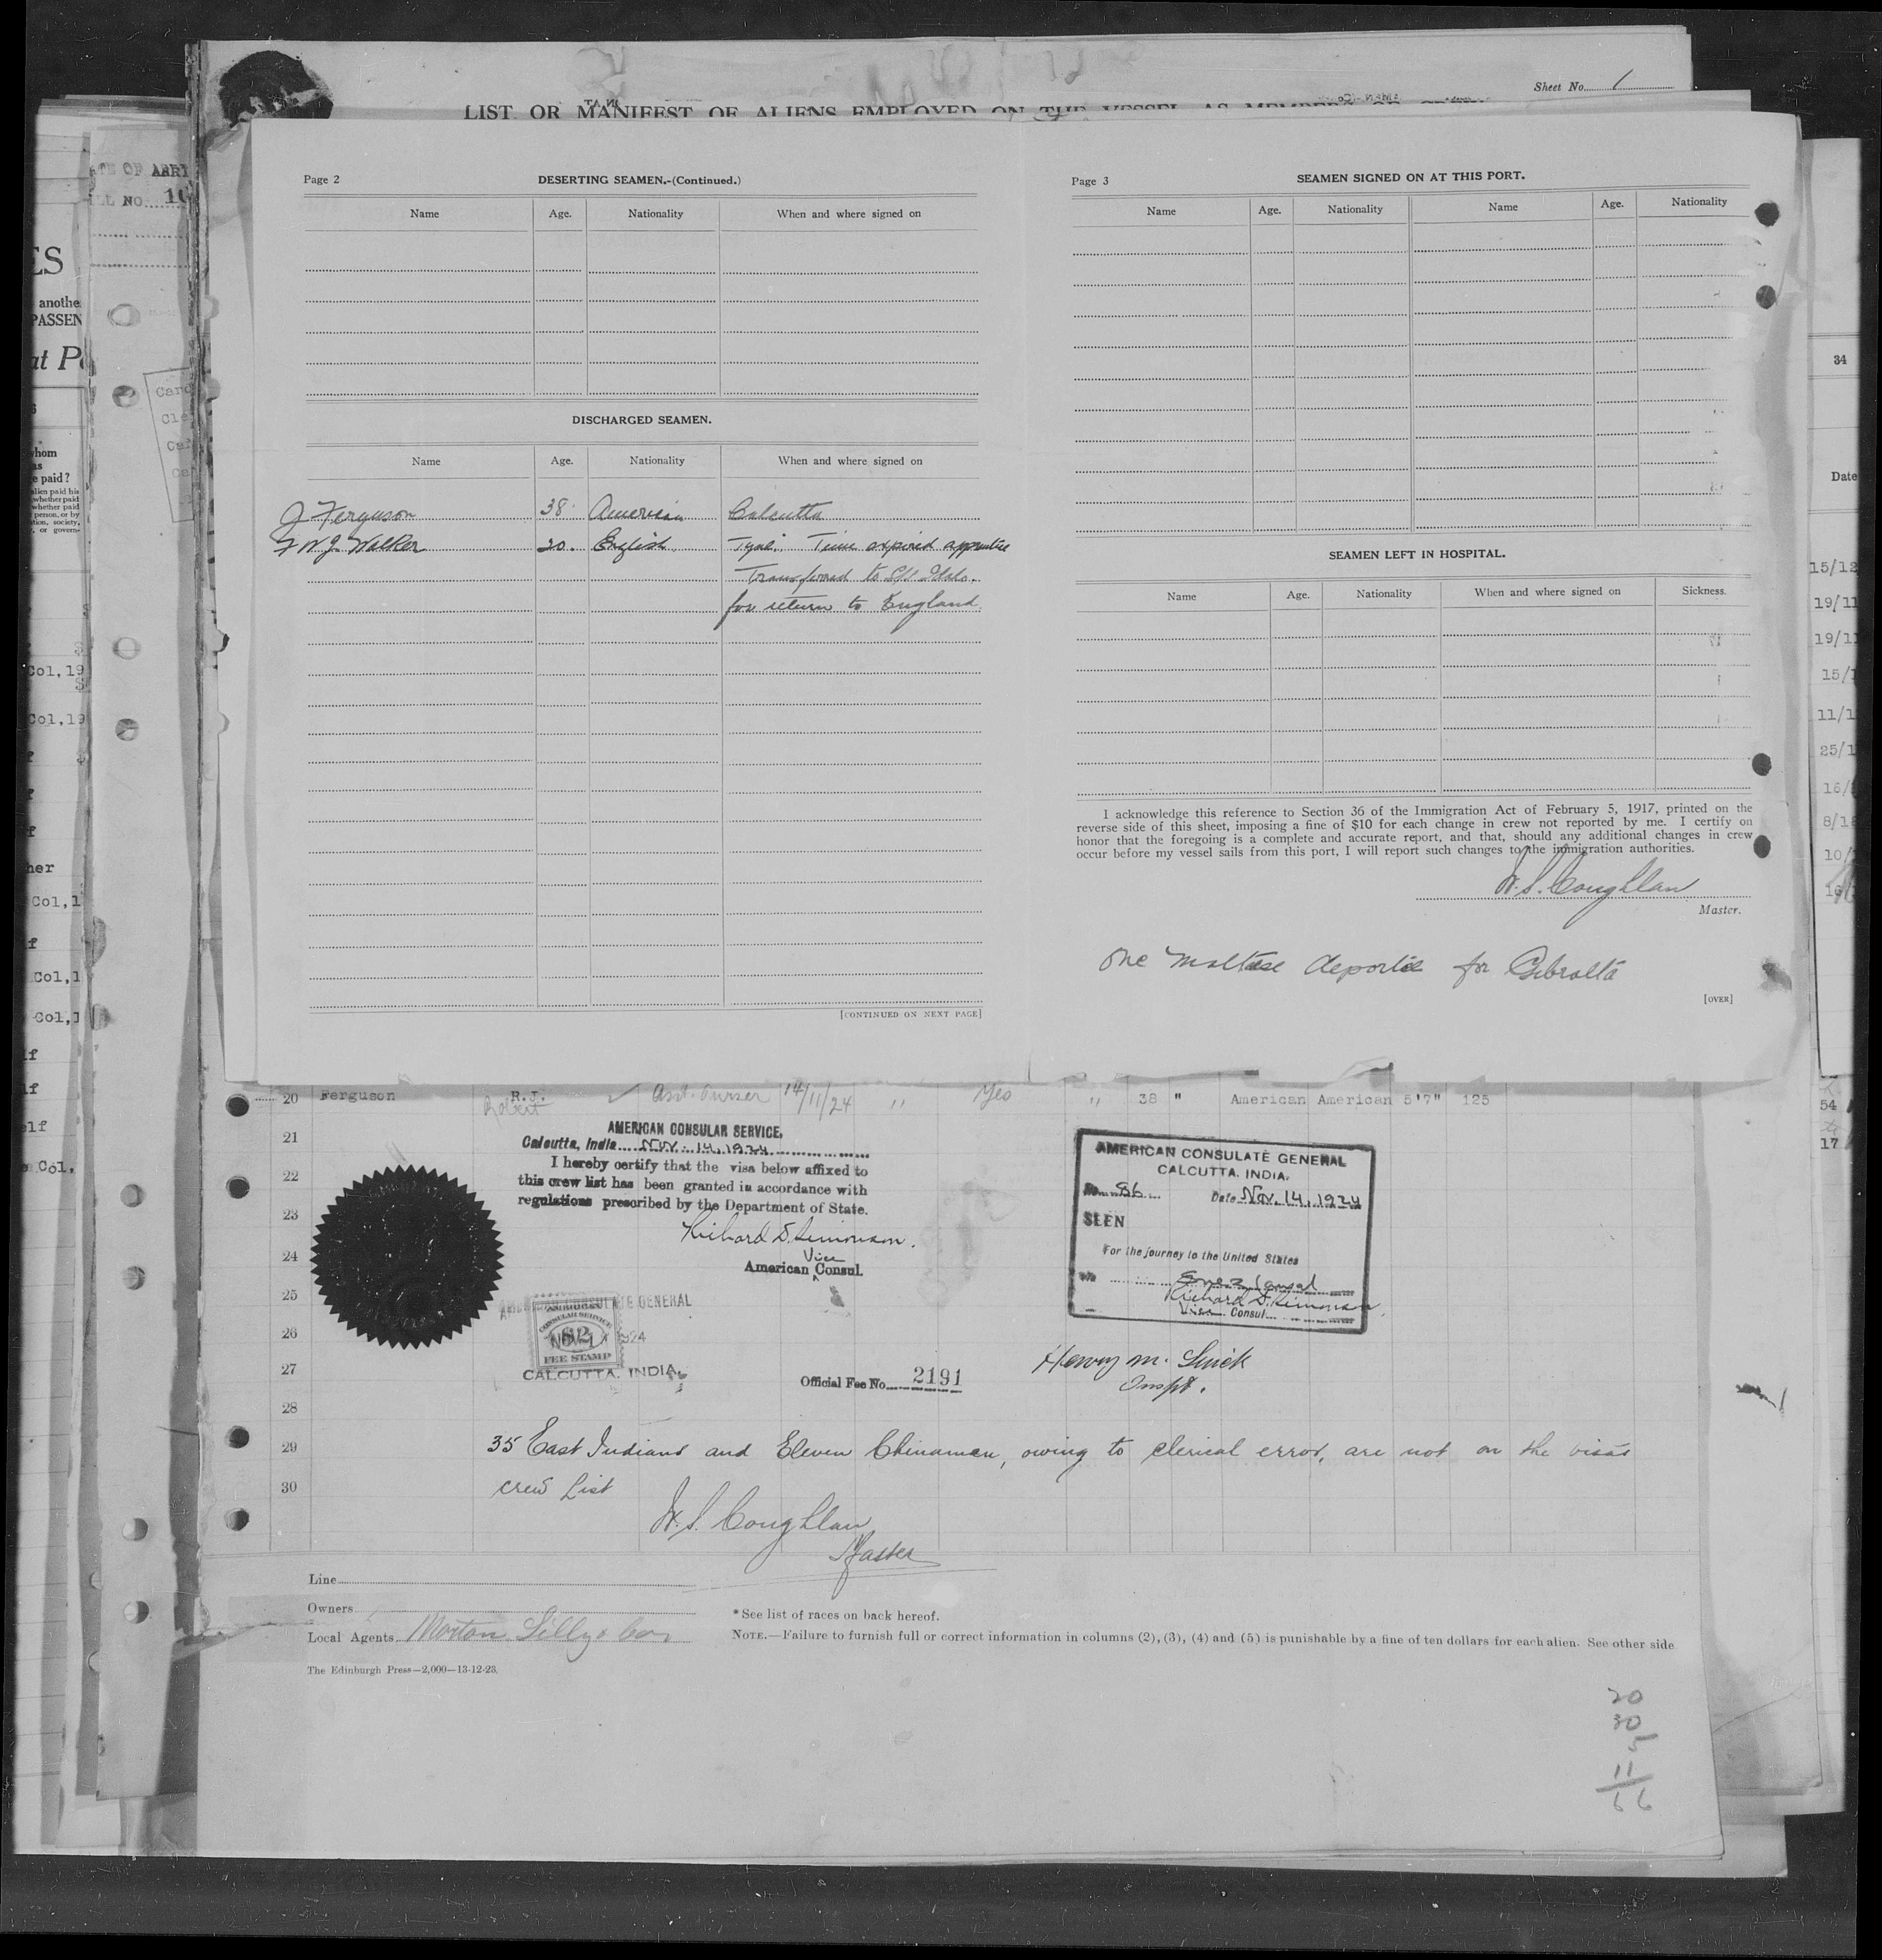 Sheet No. 1
LIST OR MANIFEST OF ALIENS EMPLOYED ON THE VESSEL AS MEMBERS OF
Page 2
DESERTING SEAMEN.-(Continued.)
Name Age. Nationality When and where signed on
DISCHARGED SEAMEN.
Name Age. Nationality When and where signed on
J Ferguson 38 American Calcutta
J W J. Walker 20. English Tyne. Time expired apprentice
Transferred to S/S Idaho.
for return to England.
[CONTINUED ON NEXT PAGE]
Page 3
SEAMEN SIGNED ON AT THIS PORT.
Name Age. Nationality Name Age. Nationality
SEAMEN LEFT IN HOSPITAL.
Name Age. Nationality When and where signed on Sickness.
I acknowledge this reference to Section 36 of the Immigration Act of February 5, 1917, printed on the
reverse side of this sheet, imposing a fine of $10 for each change in crew not reported by me. I certify on
honor that the foregoing is a complete and accurate report, and that, should any additional changes in crew
occur before my vessel sails from this port, I will report such changes to the immigration authorities.
W. S. Coughlan
Master.
One Maltese deportee for Gibralta
[OVER]
20 Ferguson R.J. Asst. Purser 14/11/24 " Yes " 38 " American American 5'7" 125
Robert
21
22
23
24
25
26
27
28
29
30
AMERICAN CONSULAR SERVICE.
Calcutta, India Nov. 14, 1924
I hereby certify that the visa below affixed to
this crew list has been granted in accordance with
regulations prescribed by the Department of State.
Richard S. Simonson.
Vice
American Consul.
AMERICAN CONSULATE GENERAL
AMERICAN
CONSULAR SERVICE
$2
FEE STAMP
1924
CALCUTTA. INDIA.
Official Fee No. 2191
AMERICAN CONSULATE GENERAL
CALCUTTA. INDIA.
No. 86 Date Nov. 14, 1924
SEEN
For the journey to the United States
via Suez Canal
Richard S. Simonson
Vice Consul
Henry M.
Inspt.
35 East Indians and Eleven Chinamen, owing to clerical error, are not on the visas
crew List
W. S. Coughlan
Master
Line
Owners
Local Agents Morton Lilly & Co
*See list of races on back hereof.
NOTE.—Failure to furnish full or correct information in columns (2), (3), (4) and (5) is punishable by a fine of ten dollars for each alien. See other side
The Edinburgh Press—2,000—13-12-23.
20
30
5
11
66
34
Date
15/12
19/11
19/11
54
17